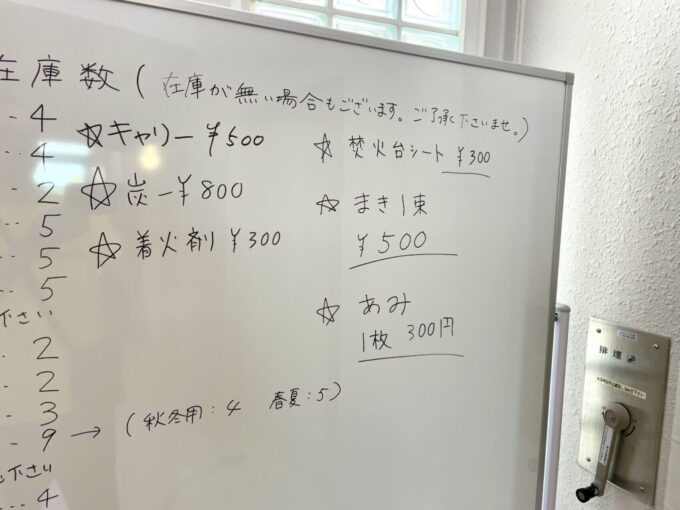 在庫数(在庫が無い場合もございます。ご了承下さいませ。)
‥4
‥4
‥2
‥5
‥5
‥5
下さい
‥2
‥2
‥3
‥9 → (秋冬用:4 春夏:5)
下さい
‥4
☆キャリー ¥500
☆炭ー¥800
☆着火剤 ¥300
☆焚火台シート ¥300
☆まき1束
¥500
☆あみ
1枚 300円
排煙